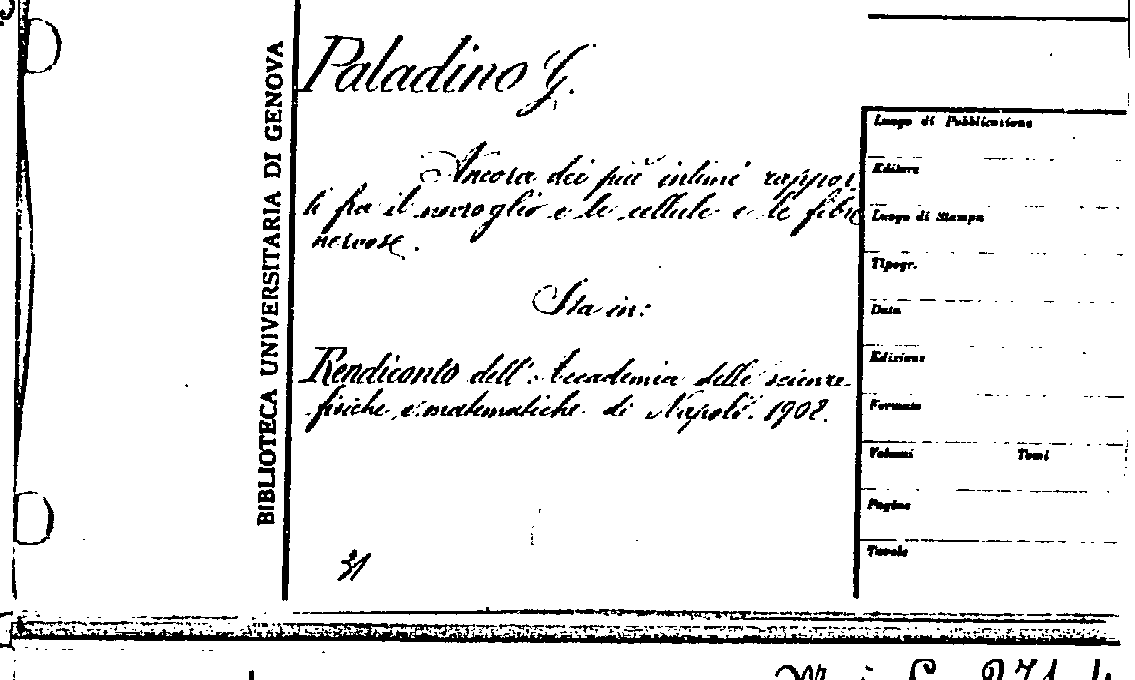 BIBLIOTECA UNIVERSITARIA DI GENOVA
Paladino G.
Ancora dei più intimi rappor
ti fra il nevroglio e le cellule e le fibre
nervose.
Sta in:
Rendiconto dell'Accademia delle scienze
fisiche e matematiche di Napoli. 1902.
31
Luogo di Pubblicazione
Editore
Luogo di Stampa
Tipogr.
Data
Edizione
Formato
Volumi Tomi
Pagine
Tavole